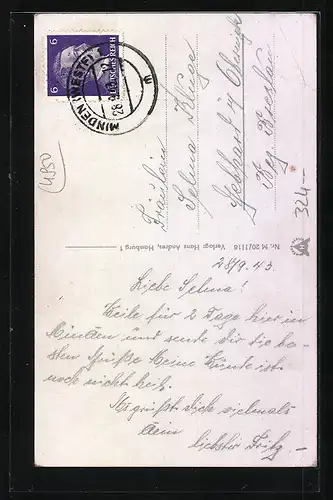 6 DEUTSCHES REICH 6
MINDEN (WESTF)
28.9.43
Fräulein
Selma Kluge
Bez. Breslau
324,-
(4950)
Nr. M 20/1116 Verlag: Hans Andres, Hamburg 1
28/9.43.
Liebe Selma!
Weile für 2 Tage hier in
Minden und sende dir die be-
sten Grüße. Meine Hände ist
noch nicht heil.
Es grüßt dich vielmals
dein
liebster Fritz